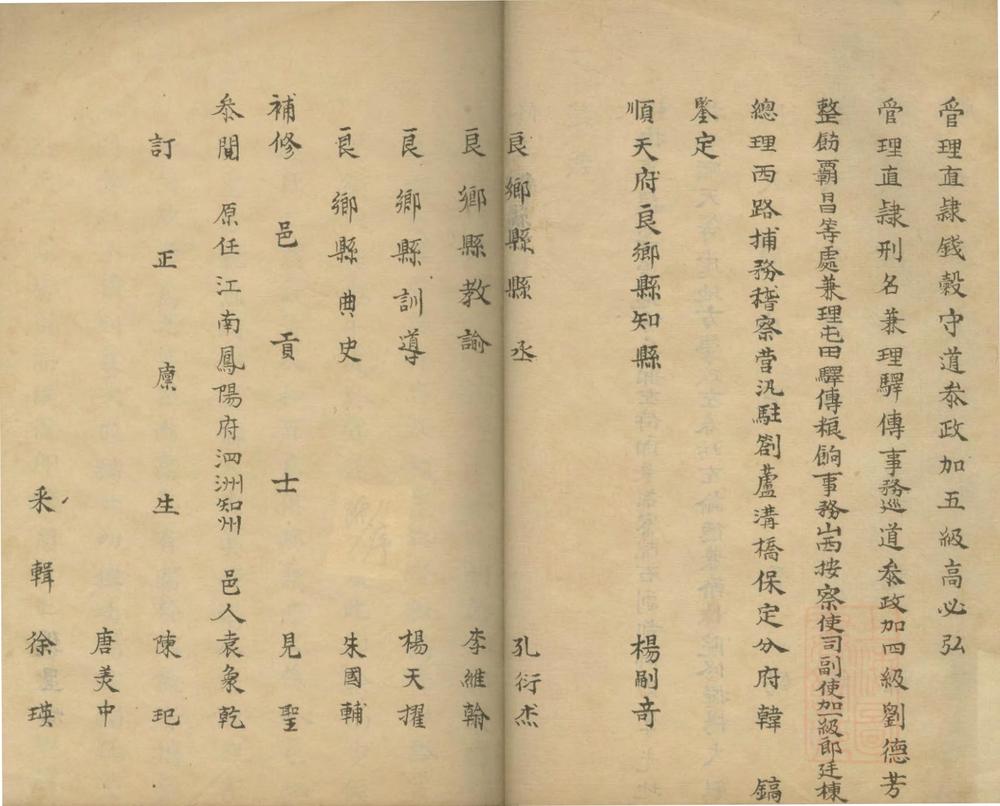 管理直隸錢穀守道叅政加五級高必弘
管理直隸刑名兼理驛傳事務巡道叅政加四級劉德芳
整飭霸昌等處兼理屯田驛傳粮餉事務山西按察使司副使加一級郎廷棟
總理西路捕務稽察營汛駐劄蘆溝橋保定分府韓鎬
鑒定
順天府良鄉縣知縣 楊嗣奇
良鄉縣縣丞 孔衍杰
良鄉縣教諭 李維翰
良鄉縣訓導 楊天擢
良鄉縣典史 朱國輔
補修邑貢士見聖
叅閱 原任江南鳳陽府泗洲知州 邑人袁象乾
訂正廩生陳玘
唐羙中
采輯徐瑛